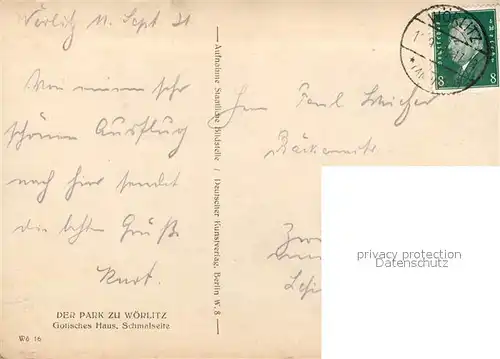 Wörlitz 11. Sept 31
Von einem sehr
schönen Ausflug
nach hier sendet
die besten Grüße
Kurt.
DER PARK ZU WÖRLITZ
Gotisches Haus, Schmalseite
Wö 16
Aufnahme Staatliche Bildstelle / Deutscher Kunstverlag, Berlin W. 8
Herrn Paul
Bäckermstr.
WÖRLITZ
8 8
privacy protection
Datenschutz